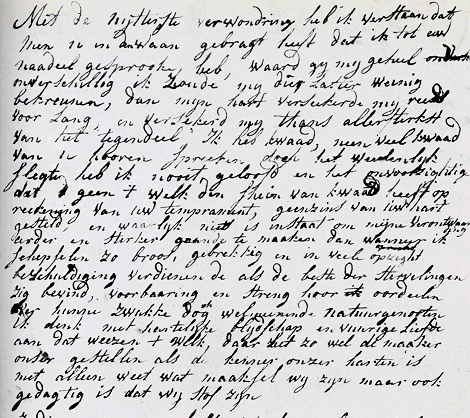 Met de uijtterste verwondring heb ik verstaan dat
men u in den waan gebragt heeft dat ik tot uw
nadeel gesprooke heb, waard gy my geheel
onverschillig ik zoude my dies Latier weinig
bekreunen, dan mijn hart verseekerde my reeds
voor Lang, en versekerd my thans allersterkst
van het tegendeel. Ik heb kwaad, neen veel kwaad
van u hooren spreeken doch het weesenlyk
slegte heb ik nooit geloofd en het onvoorzigtige
dat geen + welk den schein van kwaad heeft op
reekening van uw temprament, geenzins van uw hart
gesteld en waarlyk niets is instaat om mijne verontwaar
tierder en sterker gaande te maaken dan wanneer ik
schepselen zo broos, gebrekkig en in veel opzigt
beschuldiging verdienende als de beste der stervelingen
zig bevind, voorbaarig en streng hoor oordeelen
over hunne zwakke dog welmeenende natuurgenooten
Ik denk met hartelijke blijdschap en vuurige Liefde
aan dat weezen + welk, daar het zo wel de maaker
onser gestellen als de kenner onzer harten is
niet alleen weet wat maaksel wij zijn maar ook
gedagtig is dat wij stof zijn